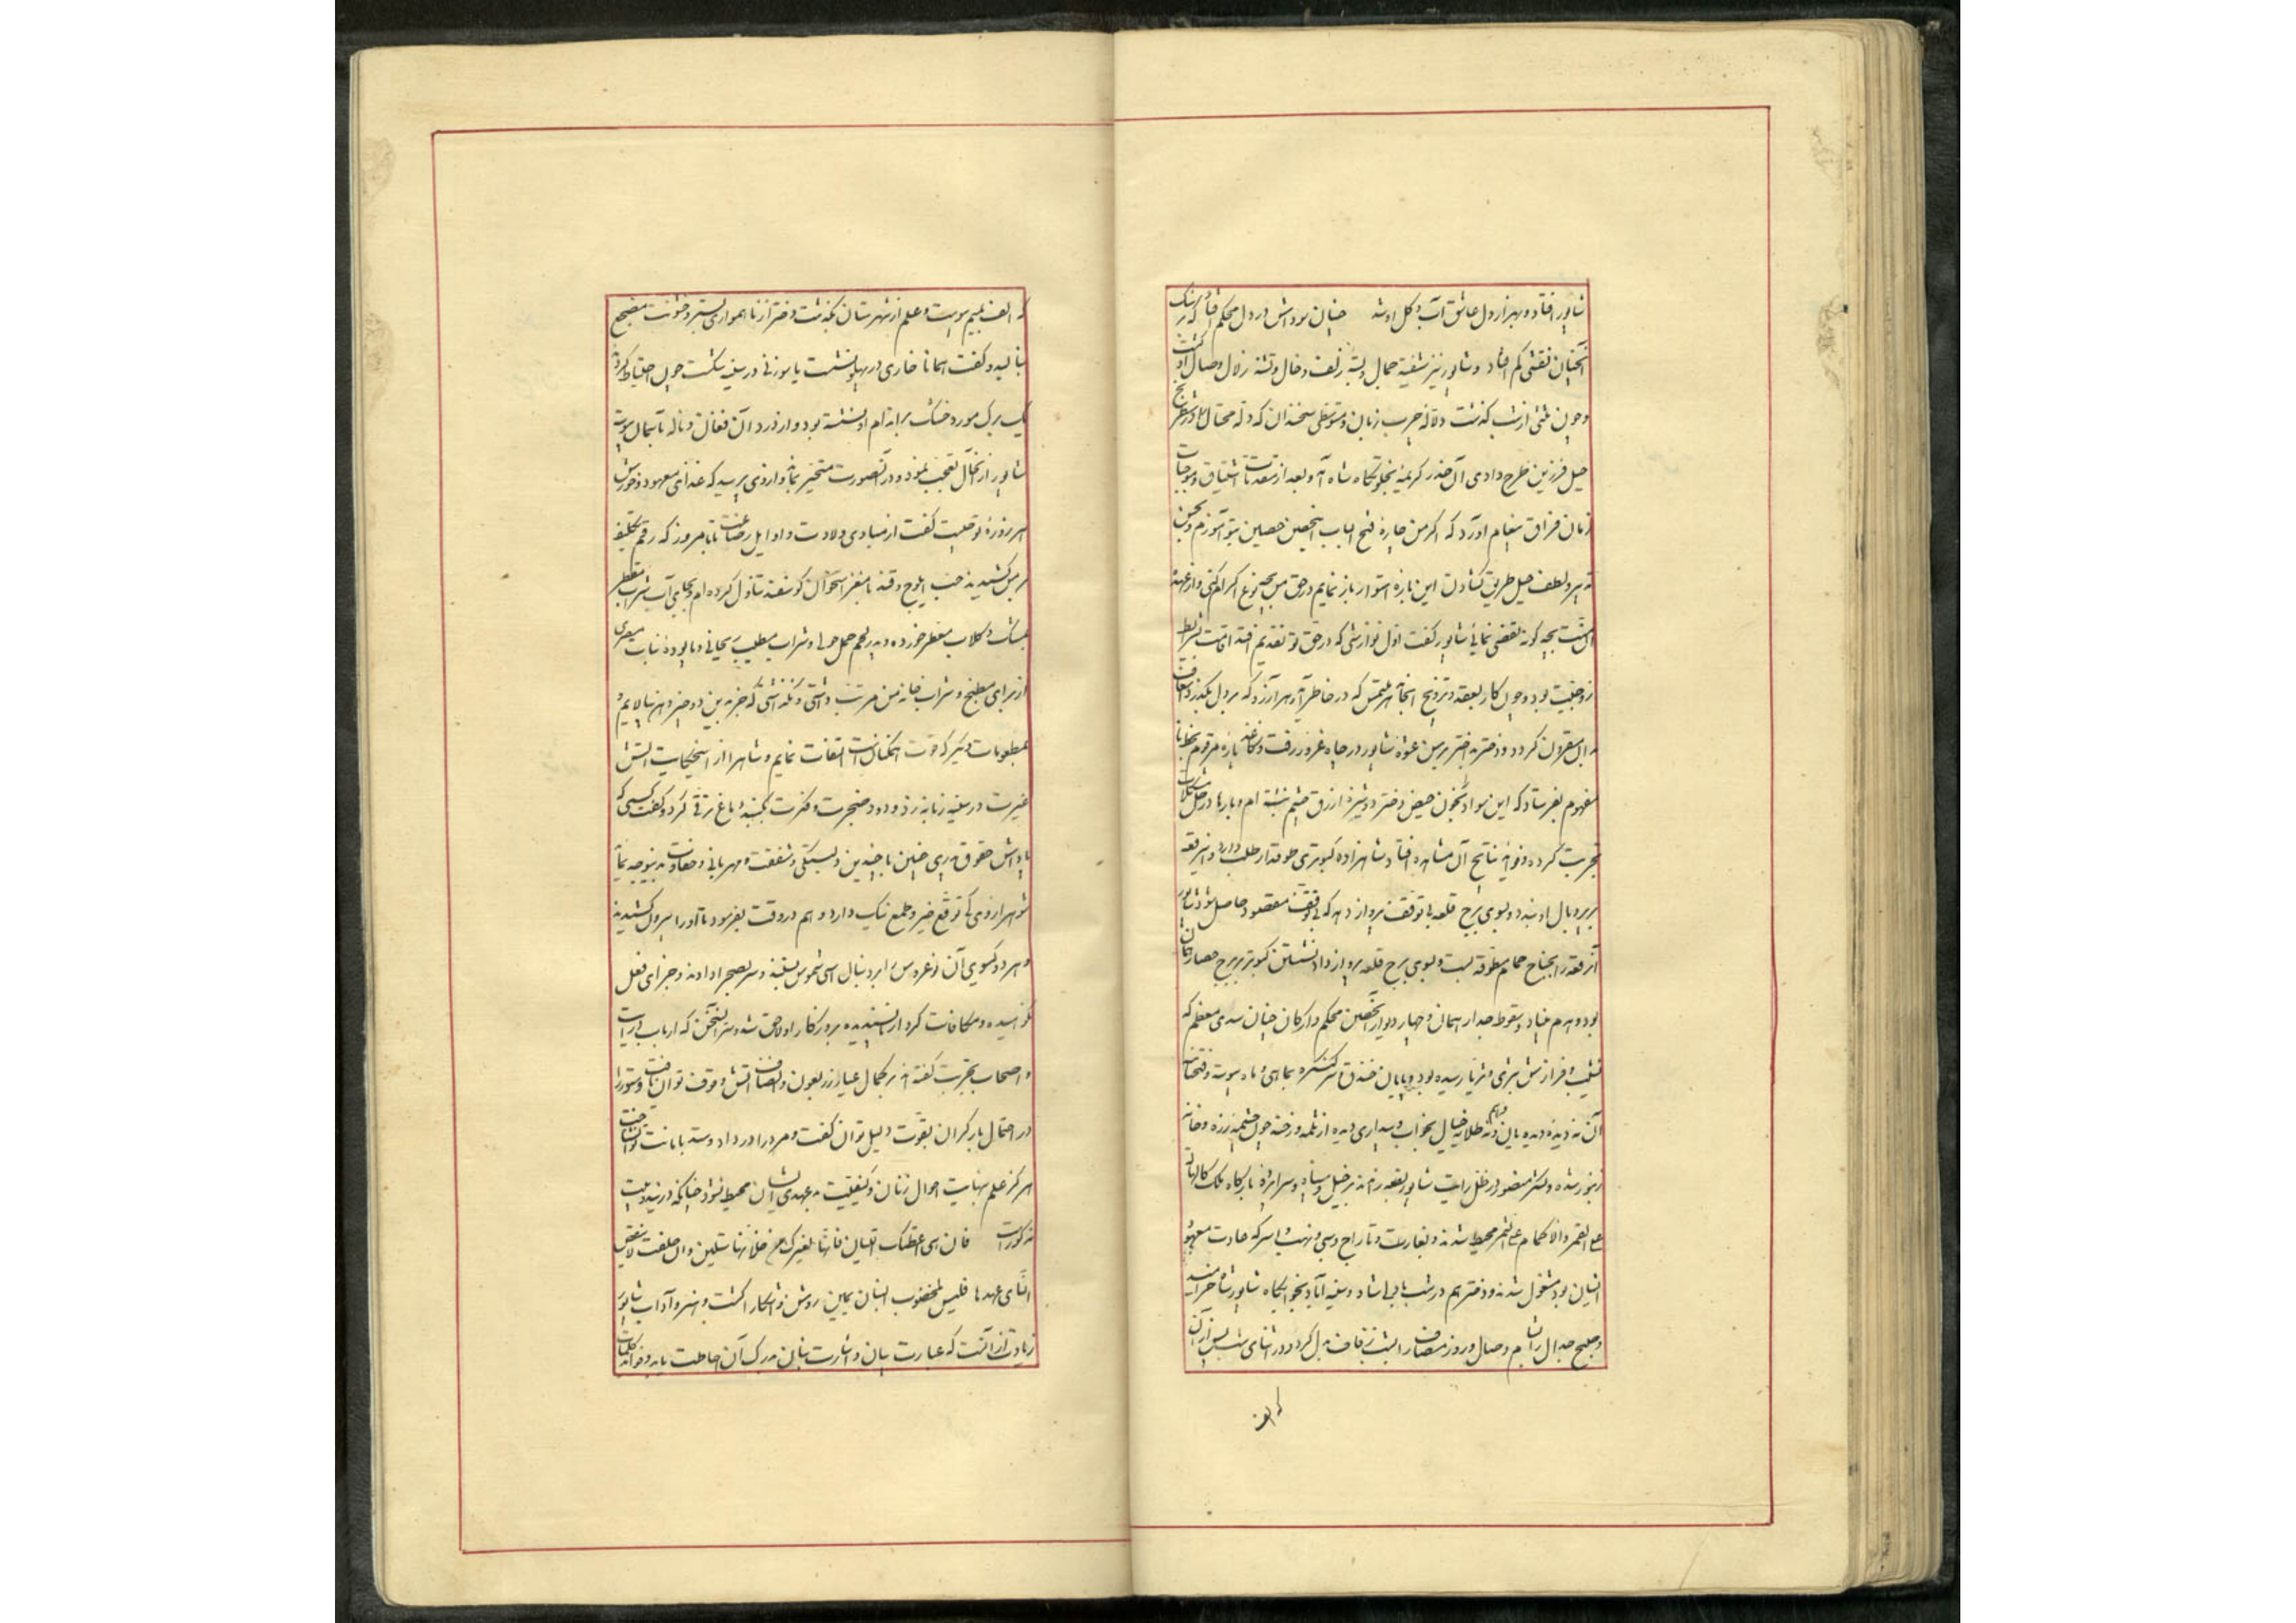 شاپور افتاد و بهزار دل عاشق آب و گل او شد چنان سوداش در دل محکم افتاد که سنگ
آنچنان نقشی کم افتاد و شاپور نیز شیفته جمال و بسته زلف و خال و تشنه زلال وصال او گشت
و چون ثلثی از شب گذشت دلاله چرب زبان و متوسطی سخندان که دله محتال در شطرنج
حیل فرزین طرح دادی آن خدر کریمه بخلوتگاه شاه آمد و بعد از مقدمات اشتیاق و موجبات
زمان فراق پیغام آورد که اگر من چاره فتح الباب این حصن حصین بتو آموزم و بحسن
تدبیر و لطف حیل طریق گشادن این باره استوار باز نمایم در حق من بچه نوع اکرام کنی و از عهده
آن بچه گونه تفضی نمائی شاپور گفت اول نوازشی که در حق تو تقدیم افتد اقامت شرایط
زوجیت بود و چون کار بعقد و تزویج انجامد هر ملتمس که در خاطر آید و هر آرزو که بر دل بگذرد باسعاف
مقرون گردد و دختر بد اختر برسن عشوه شاپور در چاه غرور رفت و کاغذ پاره مرقوم بخط نا
مفهوم بفرستاد که این سواد بخون حیض دختر دوشیزه ازرق چشم نبشته ام و بارها در حل مشکلات
تجربت کرده و فواید نتایج آن مشاهده افتاد شاهزاده کبوتری طوقدار طلب دارد و این رقعه
بر پر و بال او بندد و بسوی برج قلعه بی توقف پرواز دهد که بی توقف مقصود حاصل شود شاپور
آن رقعه را بجناح حمام مطوقه بست و بسوی برج قلعه پرواز داد نشستن کبوتر بر برج حصار همان
بود و هدم بنیاد و سقوط جدار همان و چهار دیوار آن حصن محکم و ارکان چنان سدی معظم که
نشیب و فرازش بثری و ثریا رسیده بود و پایان خندق و سر کنگره بماهی و ماه پیوسته
آن نه دیده دیده بان و نه طلایه خیال بخواب و بیداری دیده از ثلمه و رخنه چون چشمه زره و خانه
زنبور شده و لشکر منصور در ظل رایت شاپور بقلعه راندند بر خیل و سپاه و سراپرده و بارگاه ملک کالهاله
علی القمر والاکمام علی الثمر محیط شدند و بغارت و تاراج و سبی و نهب و اسر که عادت معهود
ایشان بود مشغول شدند و دختر هم در شب با دلی شاد و سینه آباد بخوابگاه شاپور شاه خرامید
و صبح جدال را بشام وصال و روز مصاف را بشب زفاف بدل کرد و در اثنای شب پس از آن
که الف
که الف بمیم پیوست و علم از شهرستان بگذشت دختر از ناهمواری بستر و خشونت مضجع
بنالید و گفت همانا خاری در پهلو نشست یا سوزنی در سینه شکست چون احتیاط کردند
یک برگ مورد خشک بر اندام او نشسته بود و از درد آن فغان و ناله بآسمان پیوسته
شاپور از آن حال تعجب نمود و در آن صورت متحیر بماند و از وی پرسید که غذای معهود و خورش
هر روزه تو چیست گفت از مبادی ولادت و اوایل رضاعت تا بامروز که رقم تکلیف
بر من کشیدند جنب لوح و قند با مغز استخوان گوسفند تناول کرده ام و بجای آب شراب مقطر
بمشک و گلاب معطر خورده و پدر لحم حمل حولی و شراب مطیب ریحانی و پالوده نبات مصری
از برای مطبخ و شراب خانه من مرتب داشتی و نگذاشتی که جز بدین دو چیز دهن بیالایم و
بمطعومات دیگر که قوت همگنان است التفات نمایم و شاه را از این حکایت آتش
غیرت در سینه زبانه زد و دود ضجرت و فکرت بگنبد دماغ ترقی کرد و گفت کسی که
پاداش حقوق پدری چنین با چندین دلبستگی و شفقت و مهربانی و حفاوت بدین وجه نماید
شوهر از وی کی توقع خیر و طمع نیک دارد و هم در وقت بفرمود تا او را بیرون کشیدند
و هر دو گیسوی آن نوعروس را بر دنبال اسبی شموس بستند و سر بصحرا دادند و جزای فعل
نکوهیده و مکافات کردار ناپسندیده بروزگار او لاحق شد و سر این سخن که ارباب درایت
و اصحاب تجربت گفته اند بر کمال عیار زر بعون و انصاف آتش وقوف توان یافت و ستور را
در احتمال بار گران بقوت دلیل توان گفت و مرد را در داد و ستد بامانت توان شناخت
هرگز علم بنهایت احوال زنان و کیفیت بدعهدی ایشان محیط نشود چنانکه درین دو بیت
مذکورست فان هی اعطتک اللیان فانها لغیرک من خلانها ستلین وان حلفت لا ینقض
النأی عهدها فلیس لمخضوب البنان یمین روشن و آشکارا گشت و هنر و آداب شاپور
زیادت از آنست که عبارت بیان و اشارت بنان مدرک آن احاطت یابد و فواید کلمات